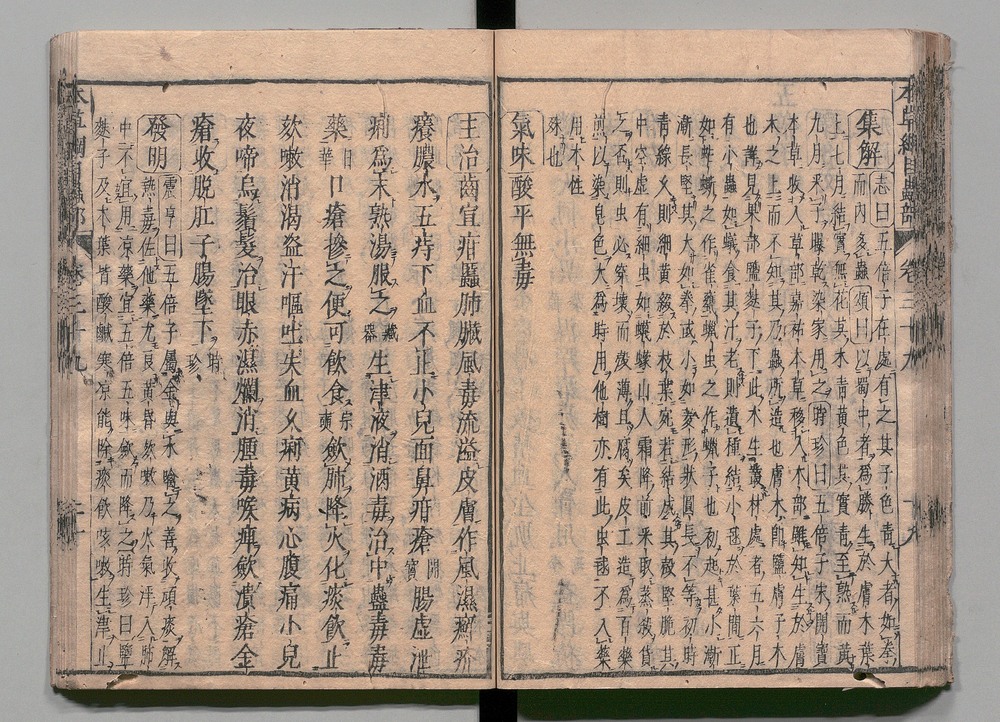 集解 志曰五倍子在處有之其子色青大者如拳
而內多蟲 頌曰以蜀中者為勝生於膚木葉
上七月結實無花其木青黃色其實青至熟而黃
九月采子曝乾染家用之 時珍曰五倍子宋開寶
本草收入草部嘉祐本草移入木部雖知生於膚
木之上而不知其乃蟲所造也膚木即鹽膚子木
也詳見果部鹽麩子下此木生叢林處者五六月
有小蟲如蟻食其汁老則遺種結小毬於葉間正
如蛅蟖之作雀甕蠟虫之作蠟子也初起甚小漸
漸長堅其大如拳或小如菱形狀圓長不等初時
青綠久則細黃綴於枝葉宛若結成其殼堅脆其
中空虛有細虫如蠛蠓山人霜降前采取蒸殺貨
之否則虫必穿壞而殼薄且腐矣皮工造為百藥
煎以染皂色大為時用他樹亦有此虫毬不入藥
用木性
殊也
氣味 酸平無毒
主治 齒宣疳䘌肺臟風毒流溢皮膚作風濕癬疥
瘙癢膿水五痔下血不止小兒面鼻疳瘡 開寶 腸虛泄
痢為末熟湯服之 藏器 生津液消酒毒治中蠱毒毒
藥 日華 口瘡摻之便可飲食 宗奭 斂肺降火化痰飲止
欬嗽消渴盜汗嘔吐失血久痢黃病心腹痛小兒
夜啼烏鬚髮治眼赤濕爛消腫毒喉痺斂潰瘡金
瘡收脫肛子腸墜下 時珍
發明 震亨曰五倍子屬金與水噙之善收頑痰解
熱毒佐他藥尤良黃昏欬嗽乃火氣浮入肺
中不宜用凉藥宜五倍五味斂而降之 時珍曰鹽
麩子及木葉皆酸鹹寒凉能除痰飲咳嗽生津止
本草綱目蟲部 卷三十九